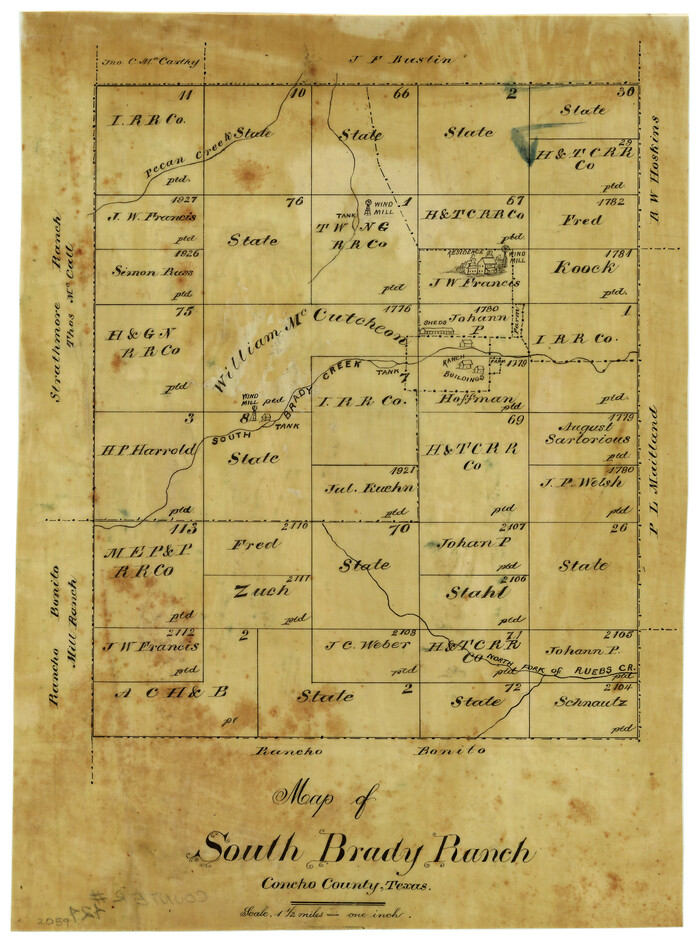 Jno C McCarthy
J F Bustin
11
I. R R Co.
Pecan Creek
ptd
10
State
66
State
2
State
30
State
29
H & T C R R
Co
ptd.
R W Hoskins
1927
J. W. Francis
ptd
76
State
1
TANK
WIND
MILL
T W N G
R R Co
ptd
67
H & T C R R Co
ptd
1782
Fred
ptd
1926
Simon Russ
ptd
RESIDENCE
WIND
MILL
J W Francis
1781
Koock
ptd
Strathmore Ranch
Thos McCall
75
H & G N
R R Co
ptd
William McCutcheon
1776
1780
Johann
P
SHEDS
1
I R R Co.
ptd
SOUTH BRADY CREEK
TANK
7
I. R R Co.
RANCH
BUILDINGS
1779
Hoffman
ptd
3
H P Harrold
ptd
WIND
MILL
ptd
8
TANK
State
69
H & T C R R
Co
ptd
1779
August
Sartorious
ptd
1921
Jul. Kuehn
ptd
1780
J. P. Welsh
ptd
P L Maitland
113
M E P & P
R R Co
ptd
2110
Fred
70
State
2107
Johan P
ptd
26
State
2111
Zuch
ptd
2106
Stahl
ptd
Rancho Bonito
Mill Ranch
2112
J W Francis
ptd
2
2108
J C. Weber
ptd
71
H & T C R R
Co
ptd
NORTH FORK OF RUEBS CR.
2105
Johann P.
ptd
A C H & B
pt
State
2
72
State
2104
Schnautz
ptd
Rancho Bonito
Map of
South Brady Ranch
Concho County, Texas.
Scale, 1 1/2 miles — one inch.
COUNTER #